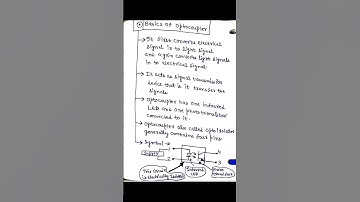 Basics of optocoupler
→ It first converts electrical
signal in to light signal
and again converts light signals
in to electrical signal
→ It acts as signal transmission
device that is it transfer the
signals
→ optocoupler has one infrared
LED and one phototransistor
connected to it.
→ optocoupler also called optoisolator
generally contains four pins
→ Symbol →
1
4
2
3
This circuit
is electrically isolated
Infrared
LED
Photo
transistor